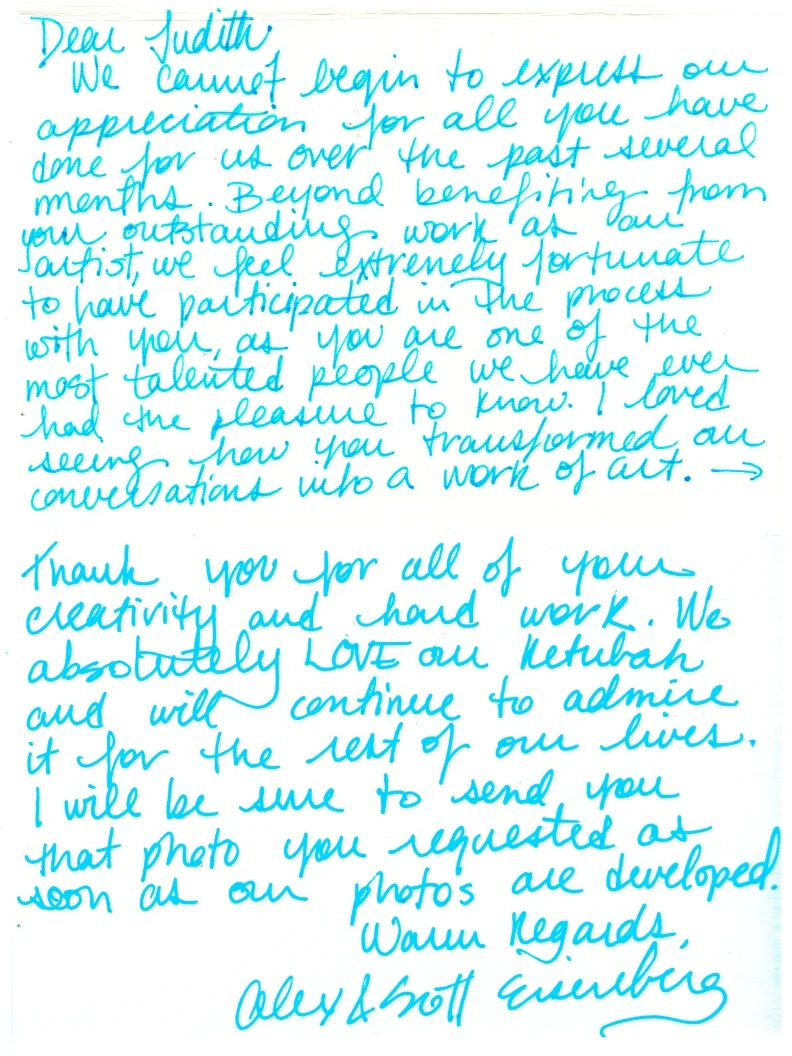 Dear Judith,
We cannot begin to express our
appreciation for all you have
done for us over the past several
months. Beyond benefiting from
your outstanding work as an
artist, we feel extremely fortunate
to have participated in the process
with you, as you are one of the
most talented people we have ever
had the pleasure to know. I loved
seeing how you transformed our
conversations into a work of art. →
Thank you for all of your
creativity and hard work. We
absolutely LOVE our Ketubah
and will continue to admire
it for the rest of our lives.
I will be sure to send you
that photo you requested as
soon as our photos are developed.
Warm Regards,
Alex & Scott Eisenberg